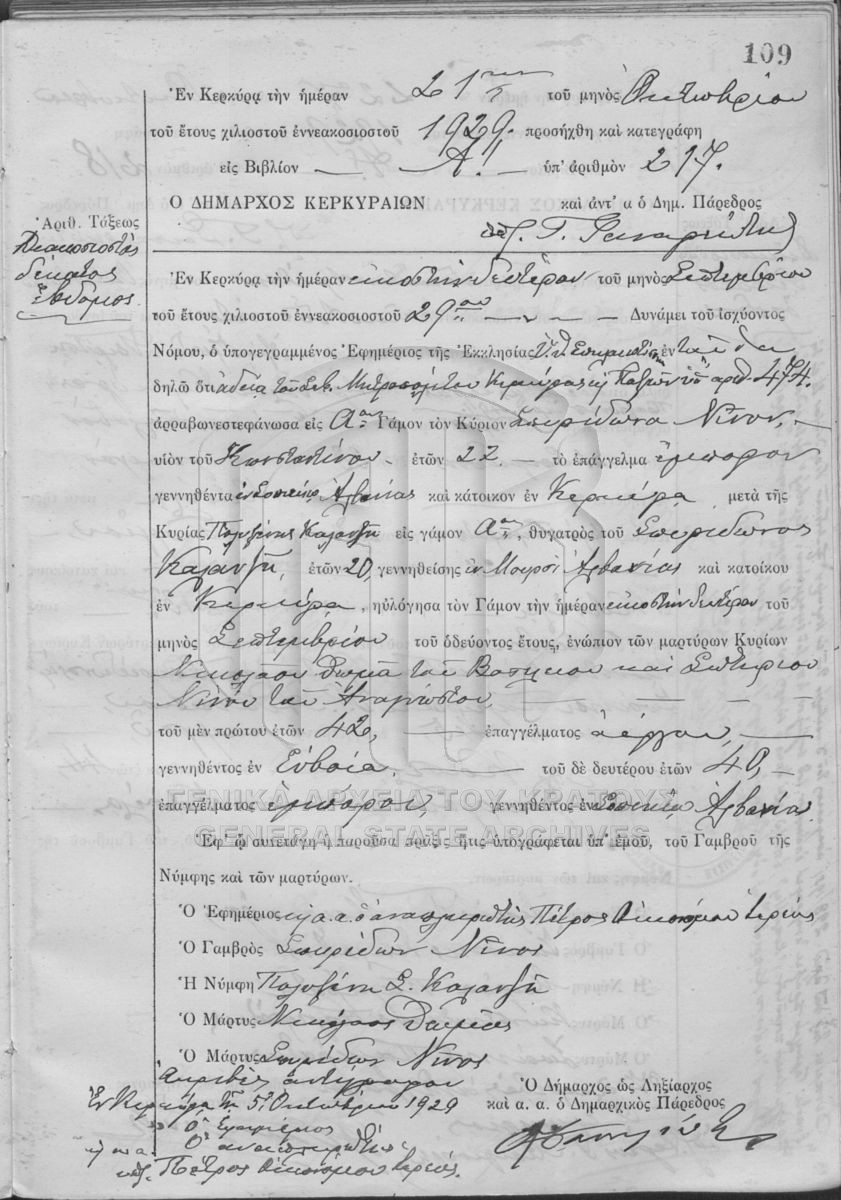 109
Ἐν Κερκύρᾳ τὴν ἡμέραν 21ην τοῦ μηνὸς Ὀκτωβρίου
τοῦ ἔτους χιλιοστοῦ ἐννεακοσιοστοῦ 1929. προσήχθη καὶ κατεγράφη
εἰς Βιβλίον — Α! ὑπ' ἀριθμὸν 217.
Ο ΔΗΜΑΡΧΟΣ ΚΕΡΚΥΡΑΙΩΝ καὶ ἀντ' α ὁ Δημ. Πάρεδρος
Ἀριθ. Τάξεως
Διακοσιοστὸς
δέκατος
ἕβδομος.
Ἐν Κερκύρᾳ τὴν ἡμέραν εἰκοστὴν δευτέραν τοῦ μηνὸς Σεπτεμβρίου
τοῦ ἔτους χιλιοστοῦ ἐννεακοσιοστοῦ 29ου — Δυνάμει τοῦ ἰσχύοντος
Νόμου, ὁ ὑπογεγραμμένος Ἐφημέριος τῆς Ἐκκλησίας
δηλῶ ὅτι ἀδείᾳ τοῦ Σεβ. Μητροπολίτου Κερκύρας καὶ Παξῶν ὑπ' ἀριθ. 474.
ἀρραβωνεστεφάνωσα εἰς Αον Γάμον τὸν Κύριον Σπυρίδωνα Νῖνον, —
υἱὸν τοῦ Κωνσταντίνου — ἐτῶν 22. — τὸ ἐπάγγελμα ἔμπορον
γεννηθέντα ἐν Σοπικῇ Ἀλβανίας καὶ κάτοικον ἐν Κερκύρᾳ μετὰ τῆς
Κυρίας Πολυξένης Καλαντζῆ εἰς γάμον Αον, θυγατρὸς τοῦ Σπυρίδωνος
Καλαντζῆ, ἐτῶν 20, γεννηθείσης ἐν Μουρσὶ Ἀλβανίας καὶ κατοίκου
ἐν Κερκύρᾳ, ηὐλόγησα τὸν Γάμον τὴν ἡμέραν εἰκοστὴν δευτέραν τοῦ
μηνὸς Σεπτεμβρίου τοῦ ὁδεύοντος ἔτους, ἐνώπιον τῶν μαρτύρων Κυρίων
Νικολάου Θωμᾶ τοῦ Βασιλείου καὶ Σωτηρίου
Νίνου τοῦ Ἀναγνώστου, — — —
τοῦ μὲν πρώτου ἐτῶν 42, — ἐπαγγέλματος ἀέργου, —
γεννηθέντος ἐν Εὐβοίᾳ, — τοῦ δὲ δευτέρου ἐτῶν 40, —
ἐπαγγέλματος ἐμπόρου, γεννηθέντος ἐν Σοπικῇ Ἀλβανίας
ΓΕΝΙΚΑ ΑΡΧΕΙΑ ΤΟΥ ΚΡΑΤΟΥΣ
GENERAL STATE ARCHIVES
Ἐφ' ᾧ συνετάγη ἡ παροῦσα πρᾶξις ἥτις ὑπογράφεται ὑπ' ἐμοῦ, τοῦ Γαμβροῦ τῆς
Νύμφης καὶ τῶν μαρτύρων.
Ὁ Ἐφημέριος κ α. α. ὁ ἀναπληρωτὴς Πέτρος Οἰκονόμου ἱερεύς
Ὁ Γαμβρὸς Σπυρίδων Νῖνος
Ἡ Νύμφη Πολυξένη Σ. Καλαντζῆ
Ὁ Μάρτυς Νικόλαος Θωμᾶς
Ὁ Μάρτυς Σπυρίδων Νῖνος
Ἀκριβὲς ἀντίγραφον
Ἐν Κερκύρᾳ τῇ 5 Ὀκτωβρίου 1929
Ὁ Ἐφημέριος
κ α. α. Ὁ ἀναπληρωτής
Πέτρος Οἰκονόμου ἱερεύς.
Ὁ Δήμαρχος ὡς Ληξίαρχος
καὶ α. α. ὁ Δημαρχικὸς Πάρεδρος